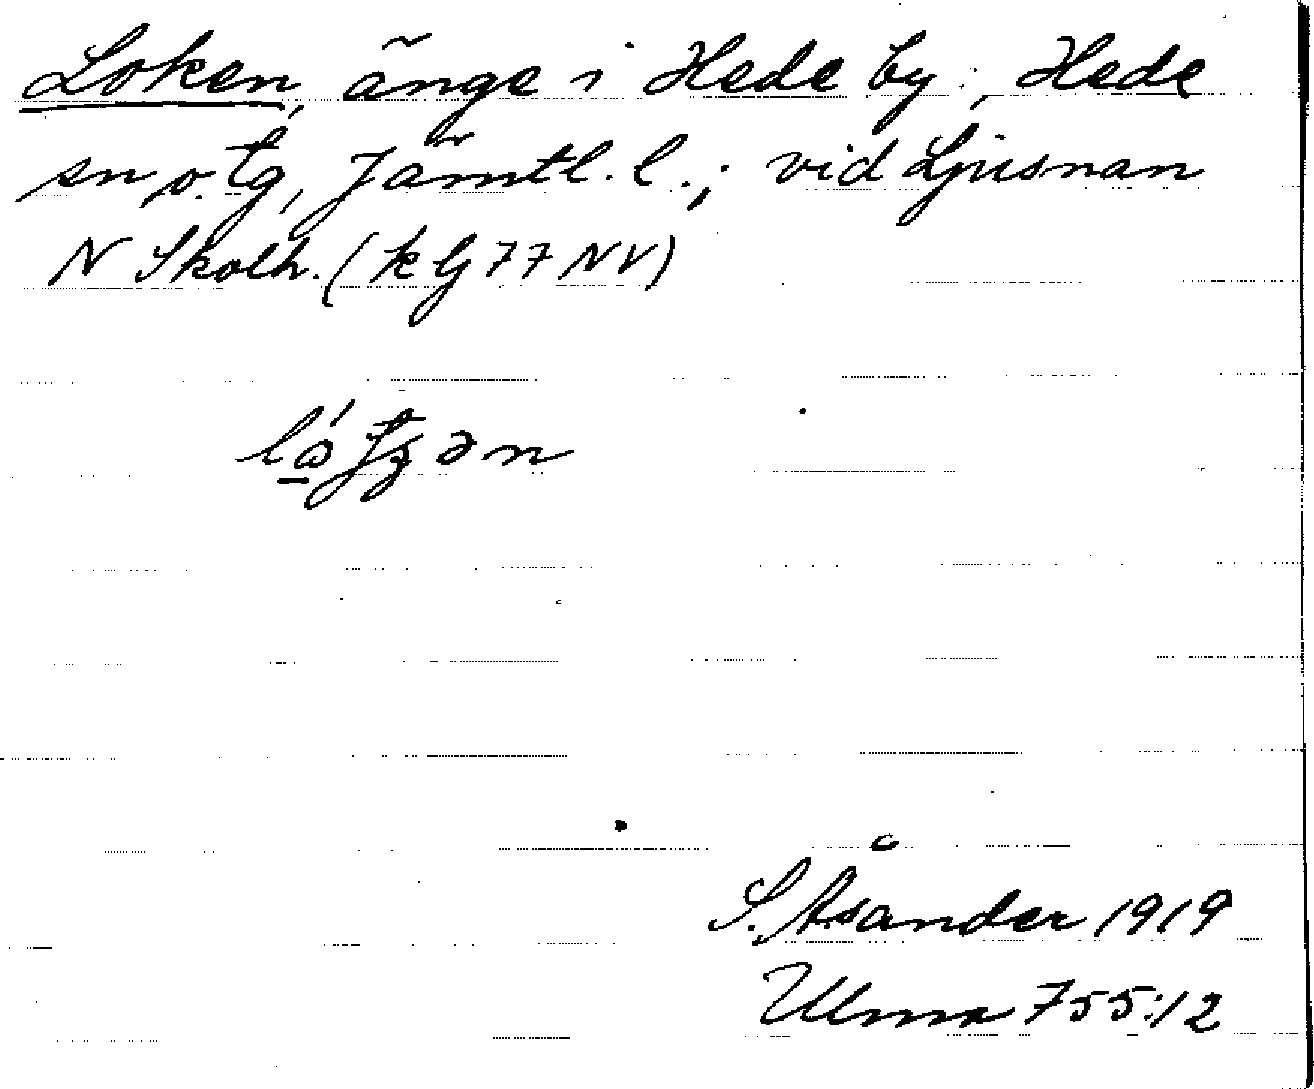 Loken, änge i Hede by, Hede
sn o. tg, Jämtl. l.; vid Ljusnan
N Skolh. (k bj 77 NV)
S. Åsander 1919
Ulma 755:12